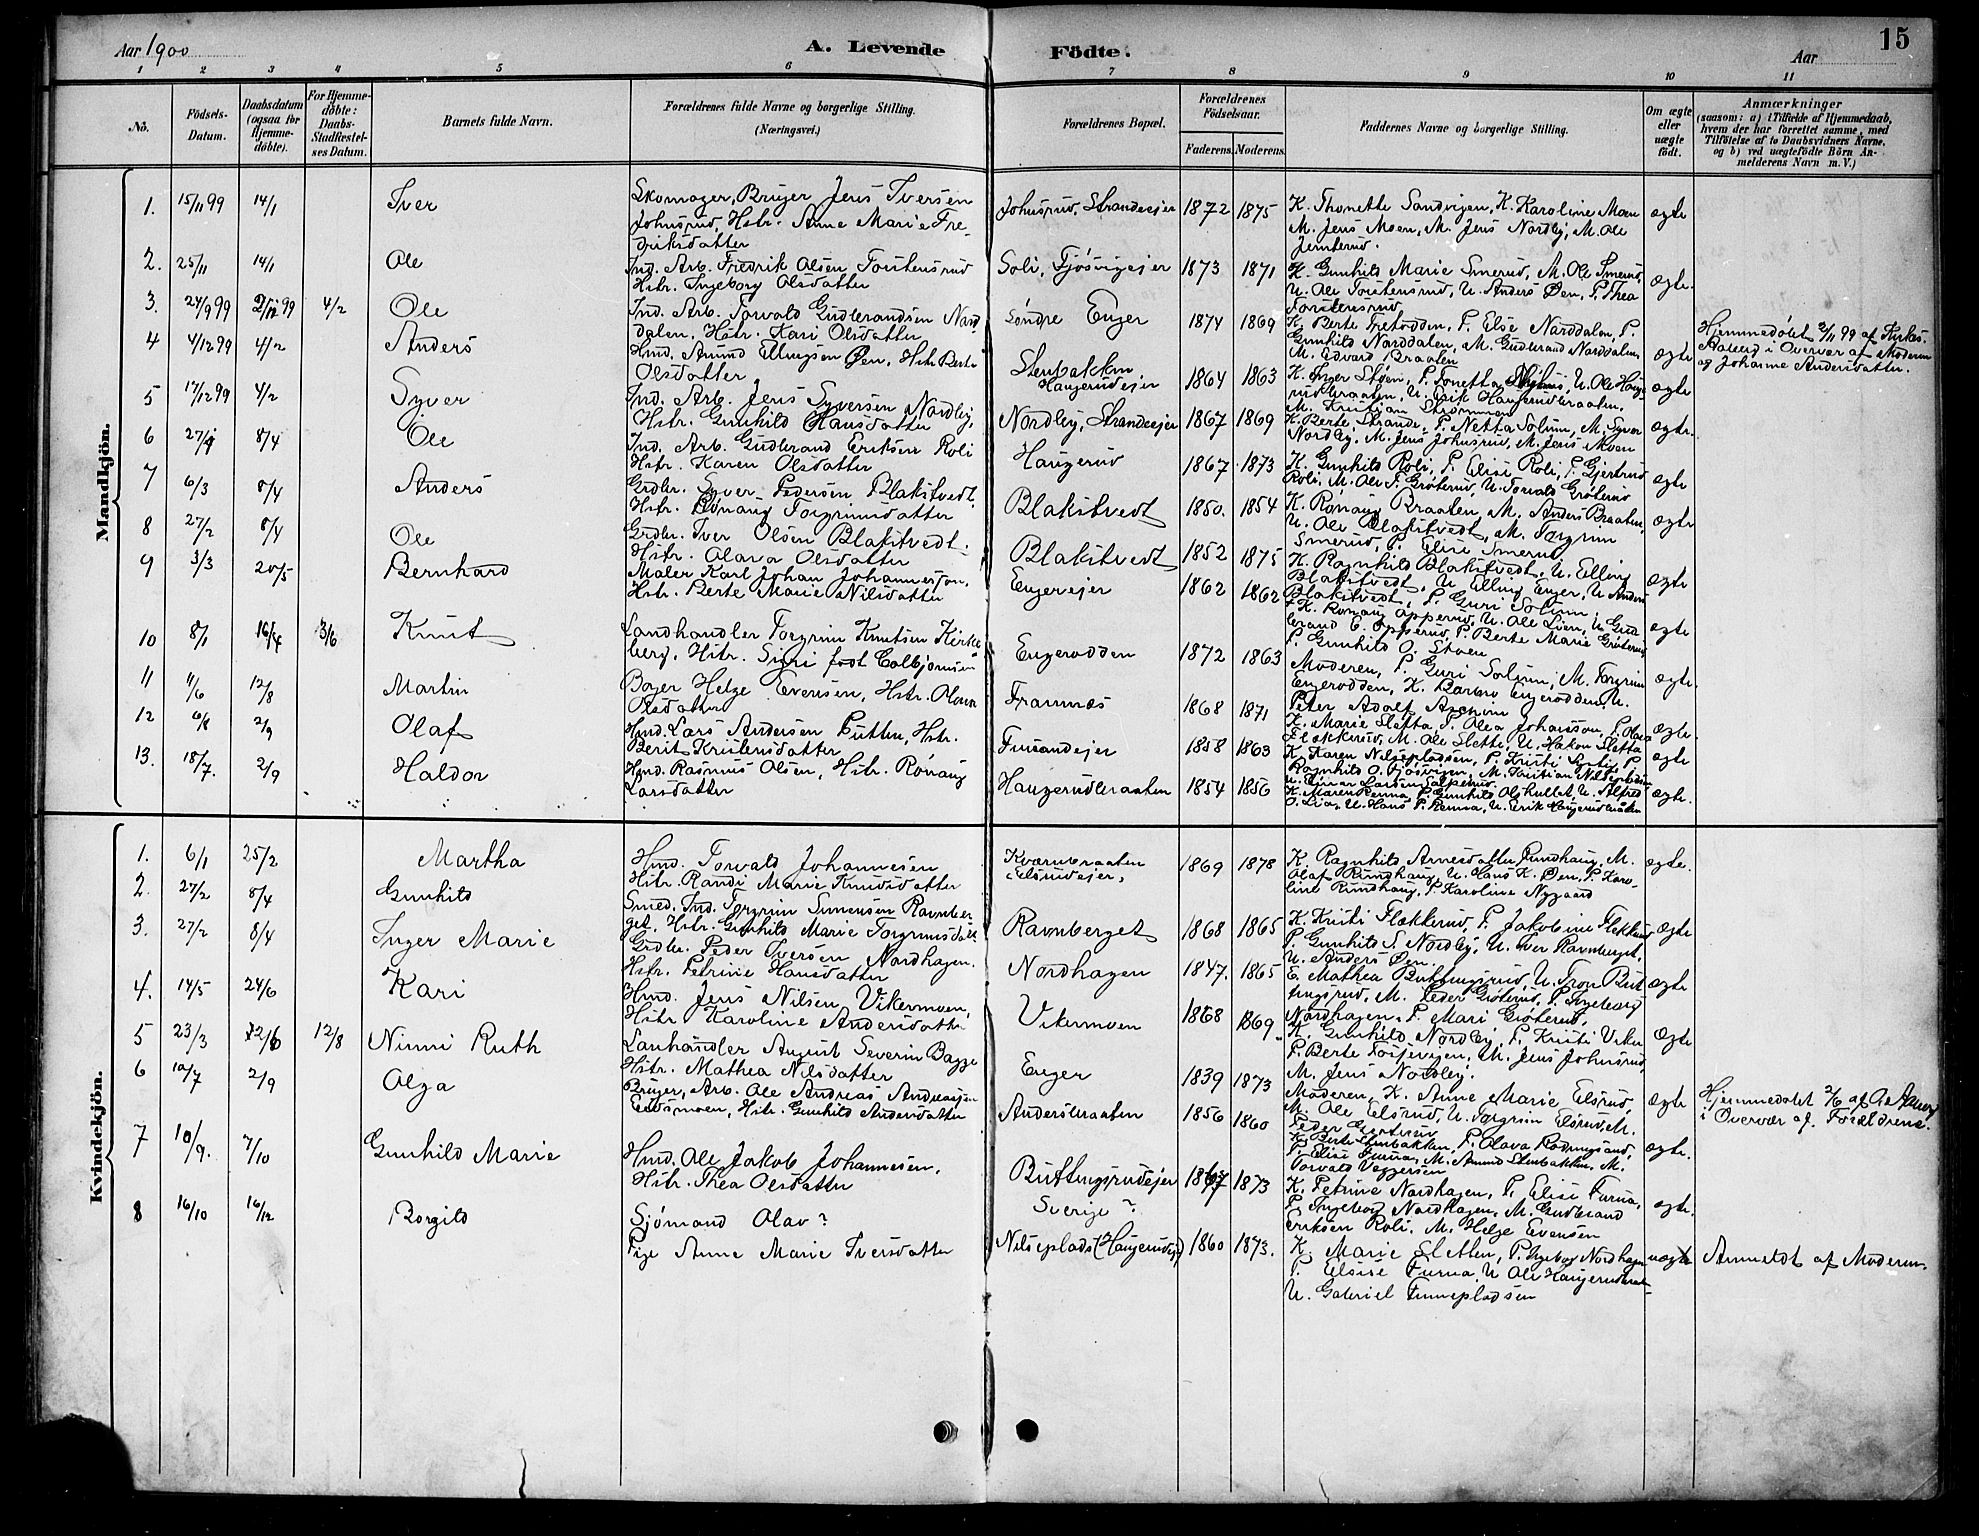 Aar 1900
A. Levende Födte.
Aar
15
1 2 3 4 5 6 7 8 9 10 11
No.
Födsels-Datum.
Daabsdatum (ogsaa for Hjemmedöbte).
For Hjemmedöbte: Daabs-Stadfæstelses Datum.
Barnets fulde Navn.
Forældrenes fulde Navne og borgerlige Stilling.
(Næringsvei.)
Forældrenes Bopæl.
Forældrenes Födselsaar.
Faderens. Moderens.
Faddernes Navne og borgerlige Stilling.
Om ægte eller uægte födt.
Anmærkninger
(saasom: a) i Tilfælde af Hjemmedaab,
hvem der har forrettet samme, med
Tilföielse af to Daabsvidners Navne,
og b) ved uægtefödte Börn An-
melderens Navn m. V.)
Mandkjön.
1. 15/11 99 14/1 Iver
Skomager, Bruger Jens Iversen
Johnsrud, Hstr. Anne Marie Fre-
driksdatter
Johnsrud, Strandeejer 1872 1875
K. Thonette Sandvigen, K. Karoline Moen
M. Jens Moen, M. Jens Nordby, M. Ole
ægte
2. 25/11 14/1 Ole
Ind. Arb. Fredrik Olsen, Torstensrud
Hstr. Ingeborg Olsdatter
Soli, 1873 1871
K. Gunhild Marie Smerud, M. Ole Smerud,
U. Ole Torstensrud, U. Anders Øen, P. Thea
Torstensrud
ægte.
3. 24/9 99 2/11 99 4/2 Ole
Ind. Arb. Torvald Gudbrandsen Nord-
dalen, Hstr. Kari Olsdatter
Søndre Enger 1874 1869
K. Berte Tretodden, P. Else Norddalen, P.
Gunhild Norddalen, M. Gudbrand Norddalen
M. Edvard Braaten
ægte
Hjemmedøbt 2/11 99 af Kirkes.
Aaberg i Overvær af Moderen
og Johanne Andersdatter.
4 4/12 99 4/2 Anders
Hmd. Amund Ellingsen Øen, Hstr Berte
Olsdatter
Stenbakken
Haugerudejer 1864 1863
K. Inger Støen, U. Ole Hauge-
rudbraaten, U. Erik Haugerudbraaten,
M. Kristian Strømmen
ægte
5 17/12 99 4/2 Syver
Ind. Arb. Jens Syversen Nordby,
Hstr. Gunhild Hansdatter
Nordby, Strandeejer 1867 1869
K. Berte Strande, P. Netta Solum, M. Syver
Nordby, M. Jens Johnsrud, M. Jens Moen
ægte.
6 8/4 Ole
Ind. Arb. Gudbrand Eriksen Roli
Hstr. Karen Olsdatter
Haugerud 1867 1873
K. Gunhild Roli, P. Elise Roli, P. Gjertrud
Roli, M. Ole T. Grøterud, U. Torvald Grøterud
ægte
7 6/3 8/4 Anders
Grdbr. Syver Pedersen Blakstvedt
Hstr. Rønaug Torgrimsdatter
Blakstvedt 1850. 1854
K. Rønaug Braaten, M. Anders Braaten,
U. Ole Blakstvedt, M. Torgrim
Smerud, P. Elise Smerud
ægte
8 27/2 8/4 Ole
Grdbr. Iver Olsen Blakstvedt.
Hstr. Olava Olsdatter
Blakstvedt 1852 1875
K. Ragnhild Blakstvedt, U. Elling
Blakstvedt, U. Elling Enger, U. Anders
Blakstvedt, P. Guri Solum.
ægte
9 3/3 20/5 Bernhard
Maler Karl Johan Johannessen,
Hstr. Berte Marie Nilsdatter
Engerejer 1862 1862
K. Rønaug Opperud, U. Ole Lien, U. Gud-
brand E. Opperud, P. Berte Marie Grøterud
P. Gunhild O. Støen
ægte
10 8/1 16/4 3/6 Knut
Landhandler Torgrim Knutsen Kirke-
berg, Hstr. Sigri født Colbjørnsen
Engerodden 1872 1863
Moderen, P. Guri Solum, M. Torgrim
Engerodden, K. Barbro Engerodden, U.
Peter Adolf
ægte.
11 11/6 12/8 Martin
Bager Helge Evensen, Hstr. Olava
Olsdatter
Framnæs 1868 1871
K. Marie Sletta, P. Olea Johansson, P. Olava
Flækkerud, M. Ole Slette, U. Hakon Sletta
ægte.
12 6/8 2/9 Olaf
Hmd. Lars Andersen Putten, Hstr.
Berit Kristensdatter
1858 1863
K. Karen Nilsepladsen, P. Kristi P.
Ragnhild O. M. Kristian Nilsepladsen
U. Einar Larsen
ægte
13. 18/7. 2/9 Haldor
Hmd. Rasmus Olsen, Hstr. Rønaug
Larsdatter
Haugerudbraaten 1854 1856
K. Maren Renna, P. Gunhild U. Alfred
O. Lia, U. Hans P. Renna, U. Erik Haugerudbraaten
ægte.
Kvindekjön.
1. 6/1 25/2 Martha
Hmd. Torvald Johannesen
Hstr. Randi Marie Knudsdatter
Kværnbraaten
Elsrudejer, 1869 1878
K. Ragnhild Arnesdatter Rundhaug, M.
Olaf Rundhaug, U. Hans K. Øen, P. Karo-
line Rundhaug, P. Karoline Nygaard
ægte.
2. 27/2 8/4 Gunhild
Smed. Ind. Torgrim Simensen Ravnber-
get, Hstr. Gunhild Marie Torgrimsdatter
Ravnberget 1868 1865
K. Kristi Flækkerud, P. Jakobine Flækkerud
P. Gunhild S. Nordby, U. Iver Ravnberget,
U. Anders Øen.
ægte
3. 27/2 8/4 Inger Marie
Grdbr. Peder Iversen Nordhagen.
Hstr. Petrine Hansdatter
Nordhagen 1847. 1865
E. Mathea Buttingsrud, U. Tron But-
tingsrud, M. Peder Grøterud, P. Ingeborg
Nordhagen, P. Mari Grøterud,
ægte
4. 14/5 24/6 Kari
Hmd. Jens Nilsen Vikermoen,
Hstr Karoline Andersdatter
Vikermoen 1868 1869
K. Gunhild Nordby, P. Kristi Viker
P. Berte M. Jens Johnsrud,
M. Jens Nordby.
ægte
5 23/3 12/8 Ninni Ruth
Lanhandler August Severin Bagge
Hstr. Mathea Nilsdatter
Enger 1839 1873
Moderen, K. Anne Marie Elsrud,
M. Ole Elsrud, U. Torgrim Elsrud, M.
Peder
ægte
Hjemmedøbt 2/6 af
i Overvær af Forældrene.
6 10/7 2/9 Olga
Bruger, Arb. Ole Andreas Andreassen
Hstr. Gunhild Andersdatter
Andersbraaten 1856 1860
K. Berte Stenbakken, P. Olava
P. Elise Furua, M. Amund Stenbakken, M.
Torvald Veggersen
ægte.
7 10/9. 7/10 Gunhild Marie
Hmd. Ole Jakob Johannesen.
Hstr. Thea Olsdatter
Buttingsrudejer 1867 1873
K. Petrine Nordhagen, P. Elise Furua,
P. Ingeborg Nordhagen, M. Gudbrand
Eriksen Roli, M. Helge Evensen
ægte.
8 16/10 16/12 Borgild
Sjömand Olav?
Pige Anne Marie Iversdatter
Sverige?
Nilseplads (Haugerudejer) 1860 1873.
K. Marie Sletten, P. Ingeborg Nordhagen
P. Elsise Furua, U Ole Haugerudbraaten
U. Gabriel Finnepladsen
uægte
Anmeldt af Moderen.